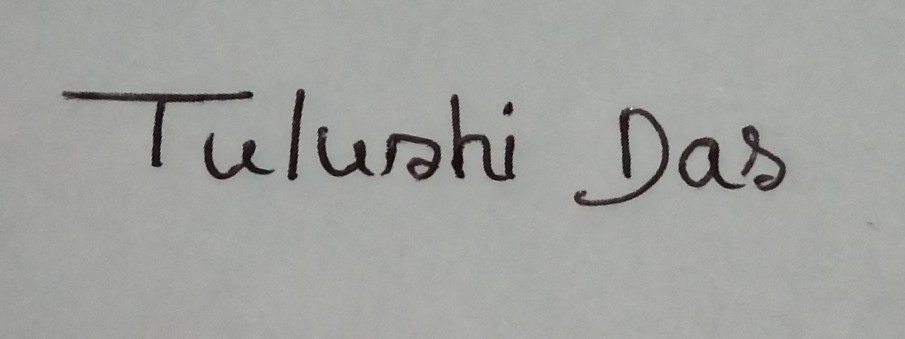 Tulushi Das